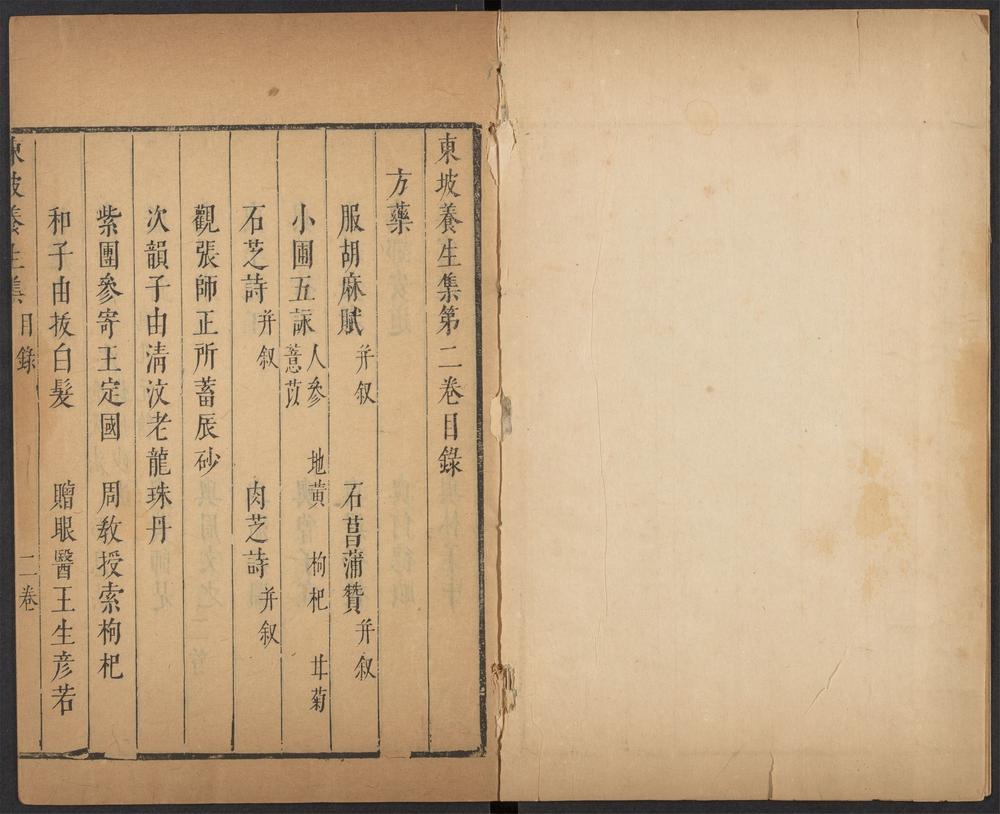 東坡養生集第二卷目錄
方藥
服胡麻賦 并叙 石菖蒲贊 并叙
小圃五詠 人參 地黃 枸杞 甘菊 薏苡
石芝詩 并叙 肉芝詩 并叙
觀張師正所蓄辰砂
次韻子由清汶老龍珠丹
紫團參寄王定國 周教授索枸杞
和子由拔白髮 贈眼醫王生彥若
東坡養生集 目錄 二卷